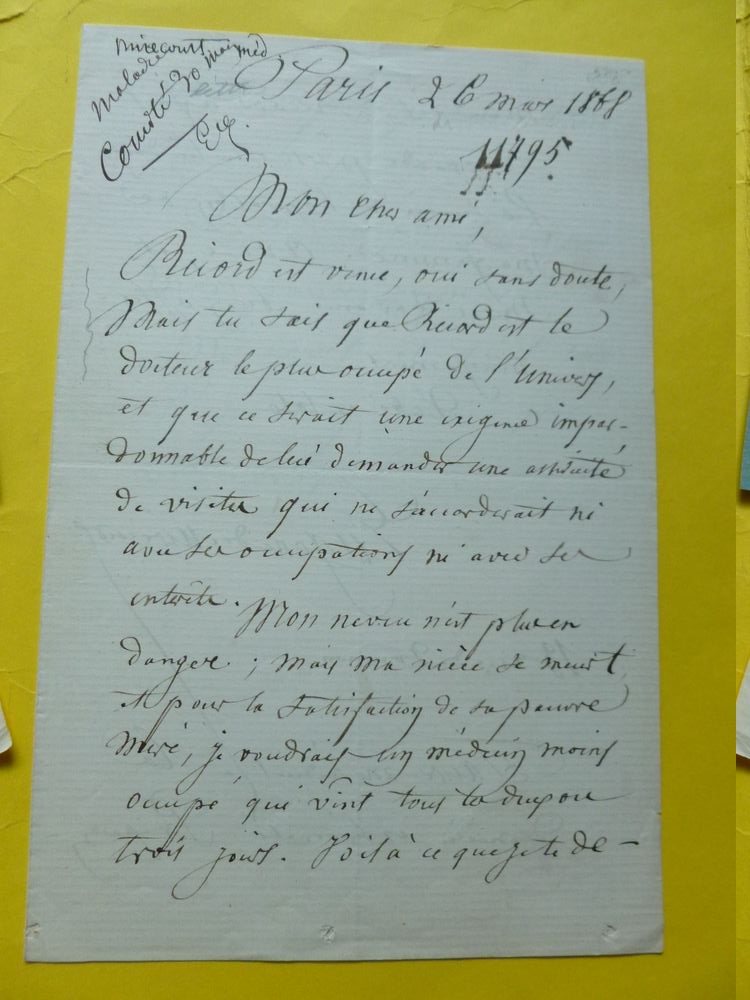 Mirecourt
Maladie
Comité 20
Paris 26 mars 1868
11795.
Mon cher ami,
Ricord est venu, oui sans doute,
Mais tu sais que Ricord est le
docteur le plus occupé de l'Univers,
et que ce serait une exigence impar-
donnable de lui demander une assiduité
de visites qui ne s'accorderait ni
avec ses occupations ni avec ses
intérêts. Mon neveu n'est plus en
danger ; mais ma nièce se meurt,
et pour la satisfaction de sa pauvre
mère, je voudrais un médecin moins
occupé qui vînt tous les deux ou
trois jours. Voilà ce que je te de-